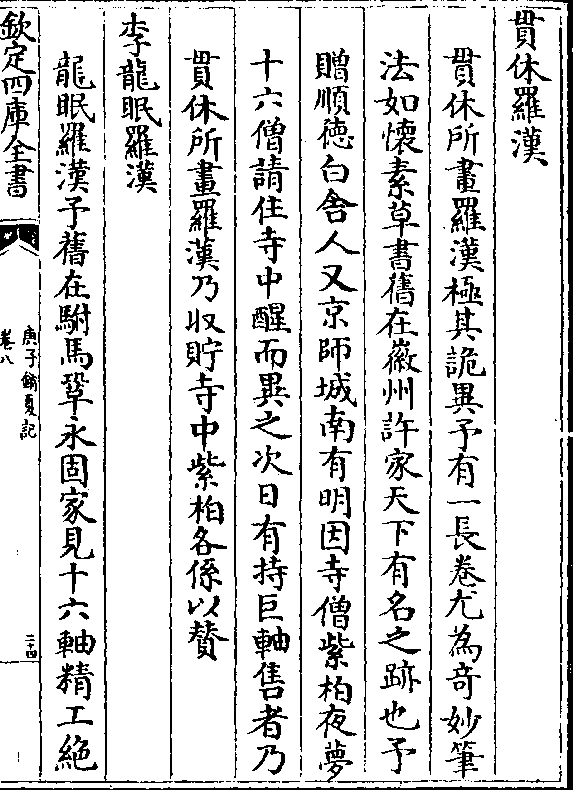 貫休羅漢
貫休所畫羅漢極其詭異予有一長卷尤為奇妙筆
法如懷素草書舊在徽州許家天下有名之跡也予
贈順徳白舍人又京師城南有明因寺僧紫柏夜夢
十六僧請住寺中醒而異之次日有持巨軸售者乃
貫休所畫羅漢乃収貯寺中紫柏各係以贊
李龍眠羅漢
龍眠羅漢予舊在駙馬鞏永固家見十六軸精工絶
欽定四庫全書
庚子銷夏記
卷八
二十四